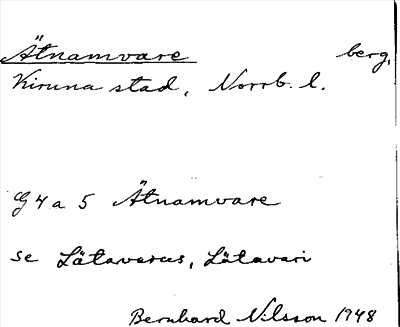 Ätnamvare berg,
Kiruna stad, Norrb. l.
G4a 5 Ätnamvare
se Lätavarus, Lätavari
Bernhard Nilsson 1948